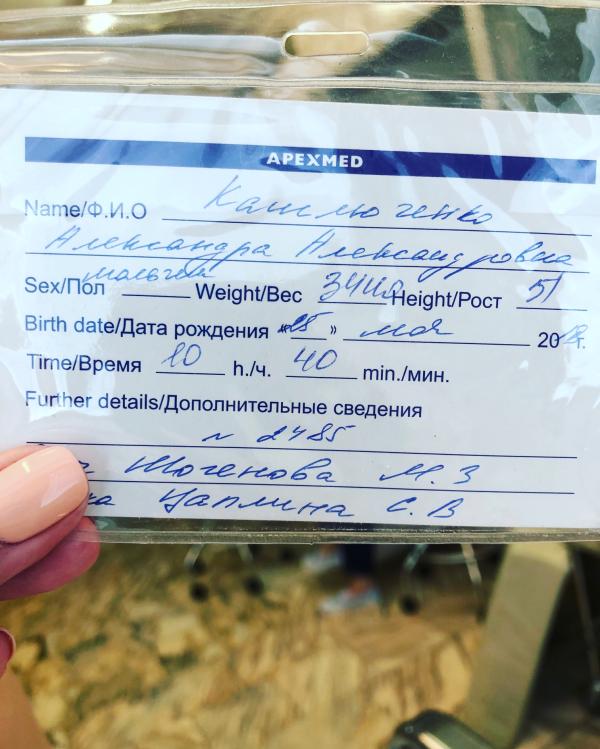 APEXMED
Name/Ф.И.О Кашлюченко
Александра Александровна
мальчик
Sex/Пол Weight/Вес 3410 Height/Рост 51
Birth date/Дата рождения « 25 » мая 20 г.
Time/Время 10 h./ч. 40 min./мин.
Further details/Дополнительные сведения
№ 2485
Шогенова М. З
Цаплина С. В